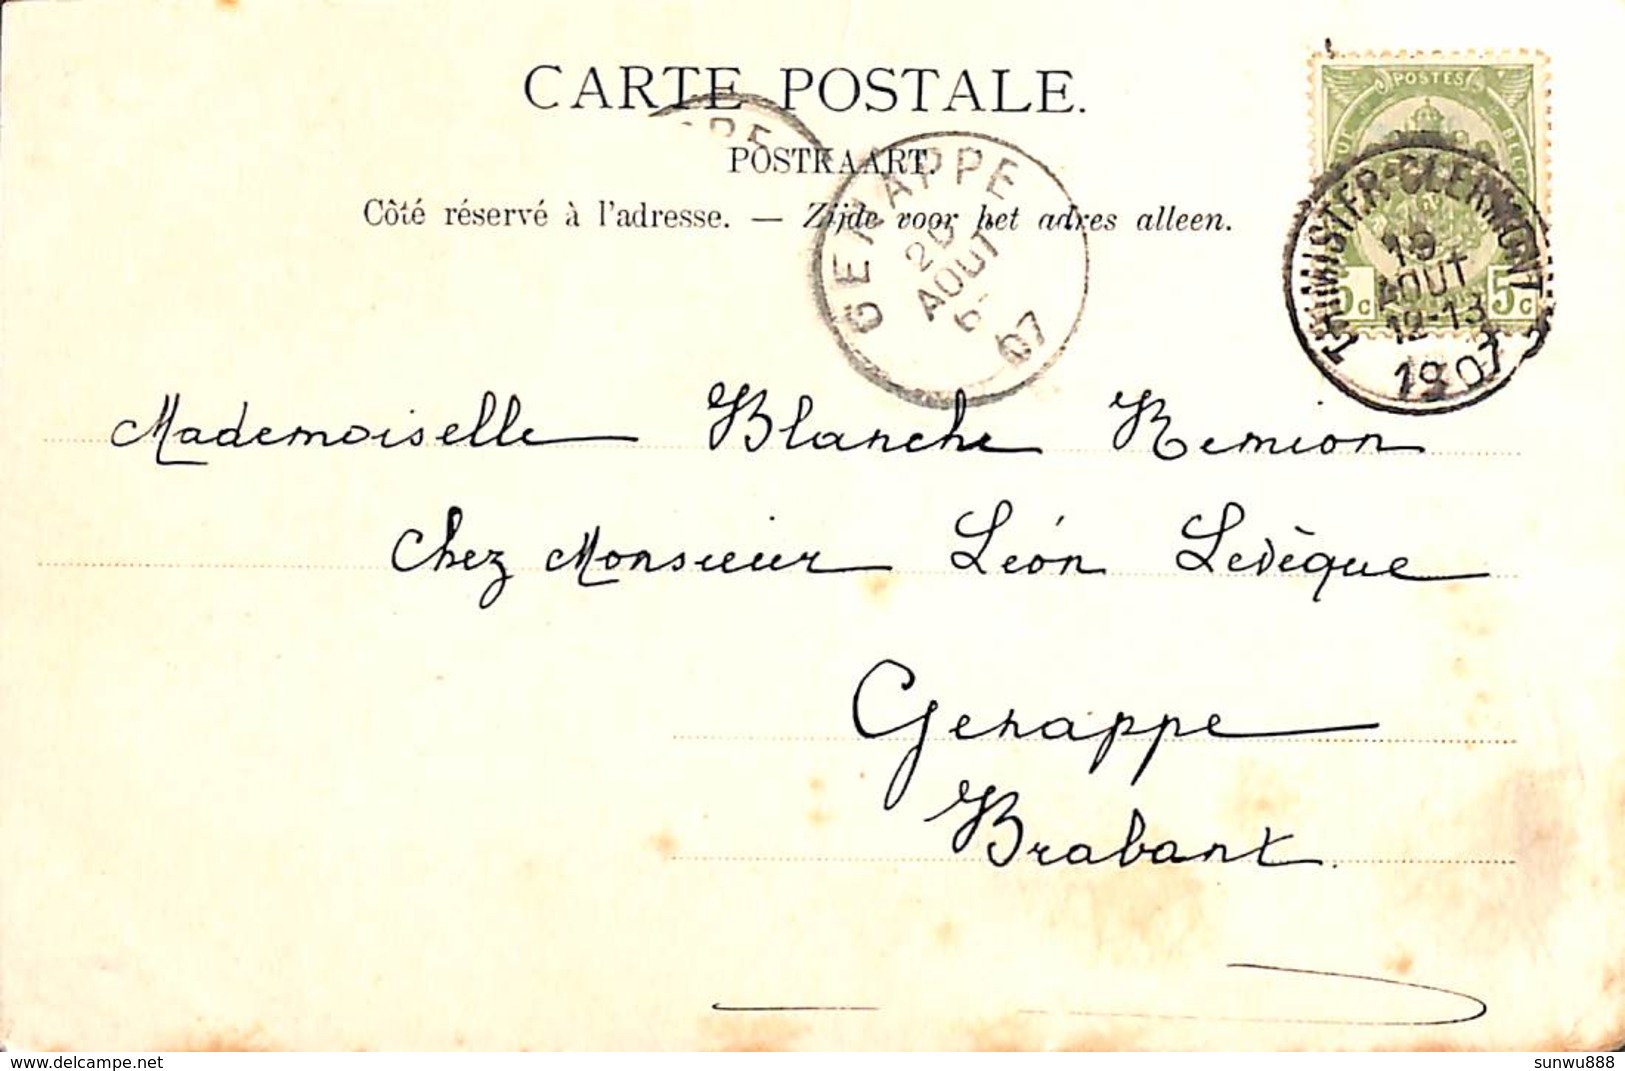 CARTE POSTALE.
POSTKAART.
Côté réservé à l'adresse. — Zijde voor het adres alleen.
GENAPPE
20
AOUT
6
07
POSTES
5c 5c
THIMISTER-CLERMONT
19
AOUT
12-13
1907
Mademoiselle Blanche Remion
Chez Monsieur Léon Levêque
Genappe
Brabant
www.delcampe.net
sunwu888